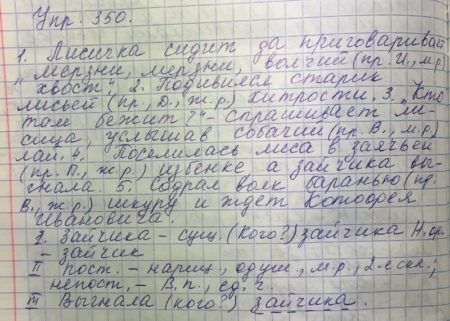 Упр. 350.
1. Лисичка сидит да приговаривает
„мерзни, мерзни, волчий (пр. И., м.р)
хвост". 2. Подивился старик
лисьей (пр., Д., ж.р) хитрости. 3. „Кто
там бежит?"- спрашивает ли-
сица, услышав собачий (пр. В., м.р)
лай. 4. Поселилась лиса в заячьей
(пр. П., ж.р) избёнке, а зайчика вы-
гнала. 5. Содрал волк баранью (пр.
В., ж.р) шкуру и ждет Котофея
Ивановича.
I. Зайчика – сущ. (кого?) зайчика Н.ф.
– зайчик
II Пост. – нариц., одуш., м.р., 2-е скл.;
непост. – В.п., ед.ч.
III Выгнала (кого?) зайчика.